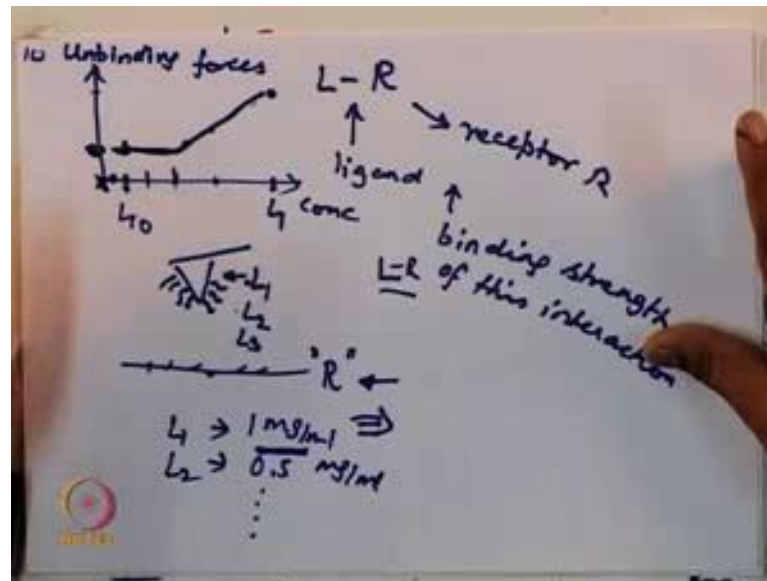 10 Unbinding forces
L - R
ligand
receptor R
L10
L1 conc
binding strength
L-R of this interaction
L1
L2
L3
"R"
L1 → 1 mg/ml ⇒
L2 → 0.5 mg/ml